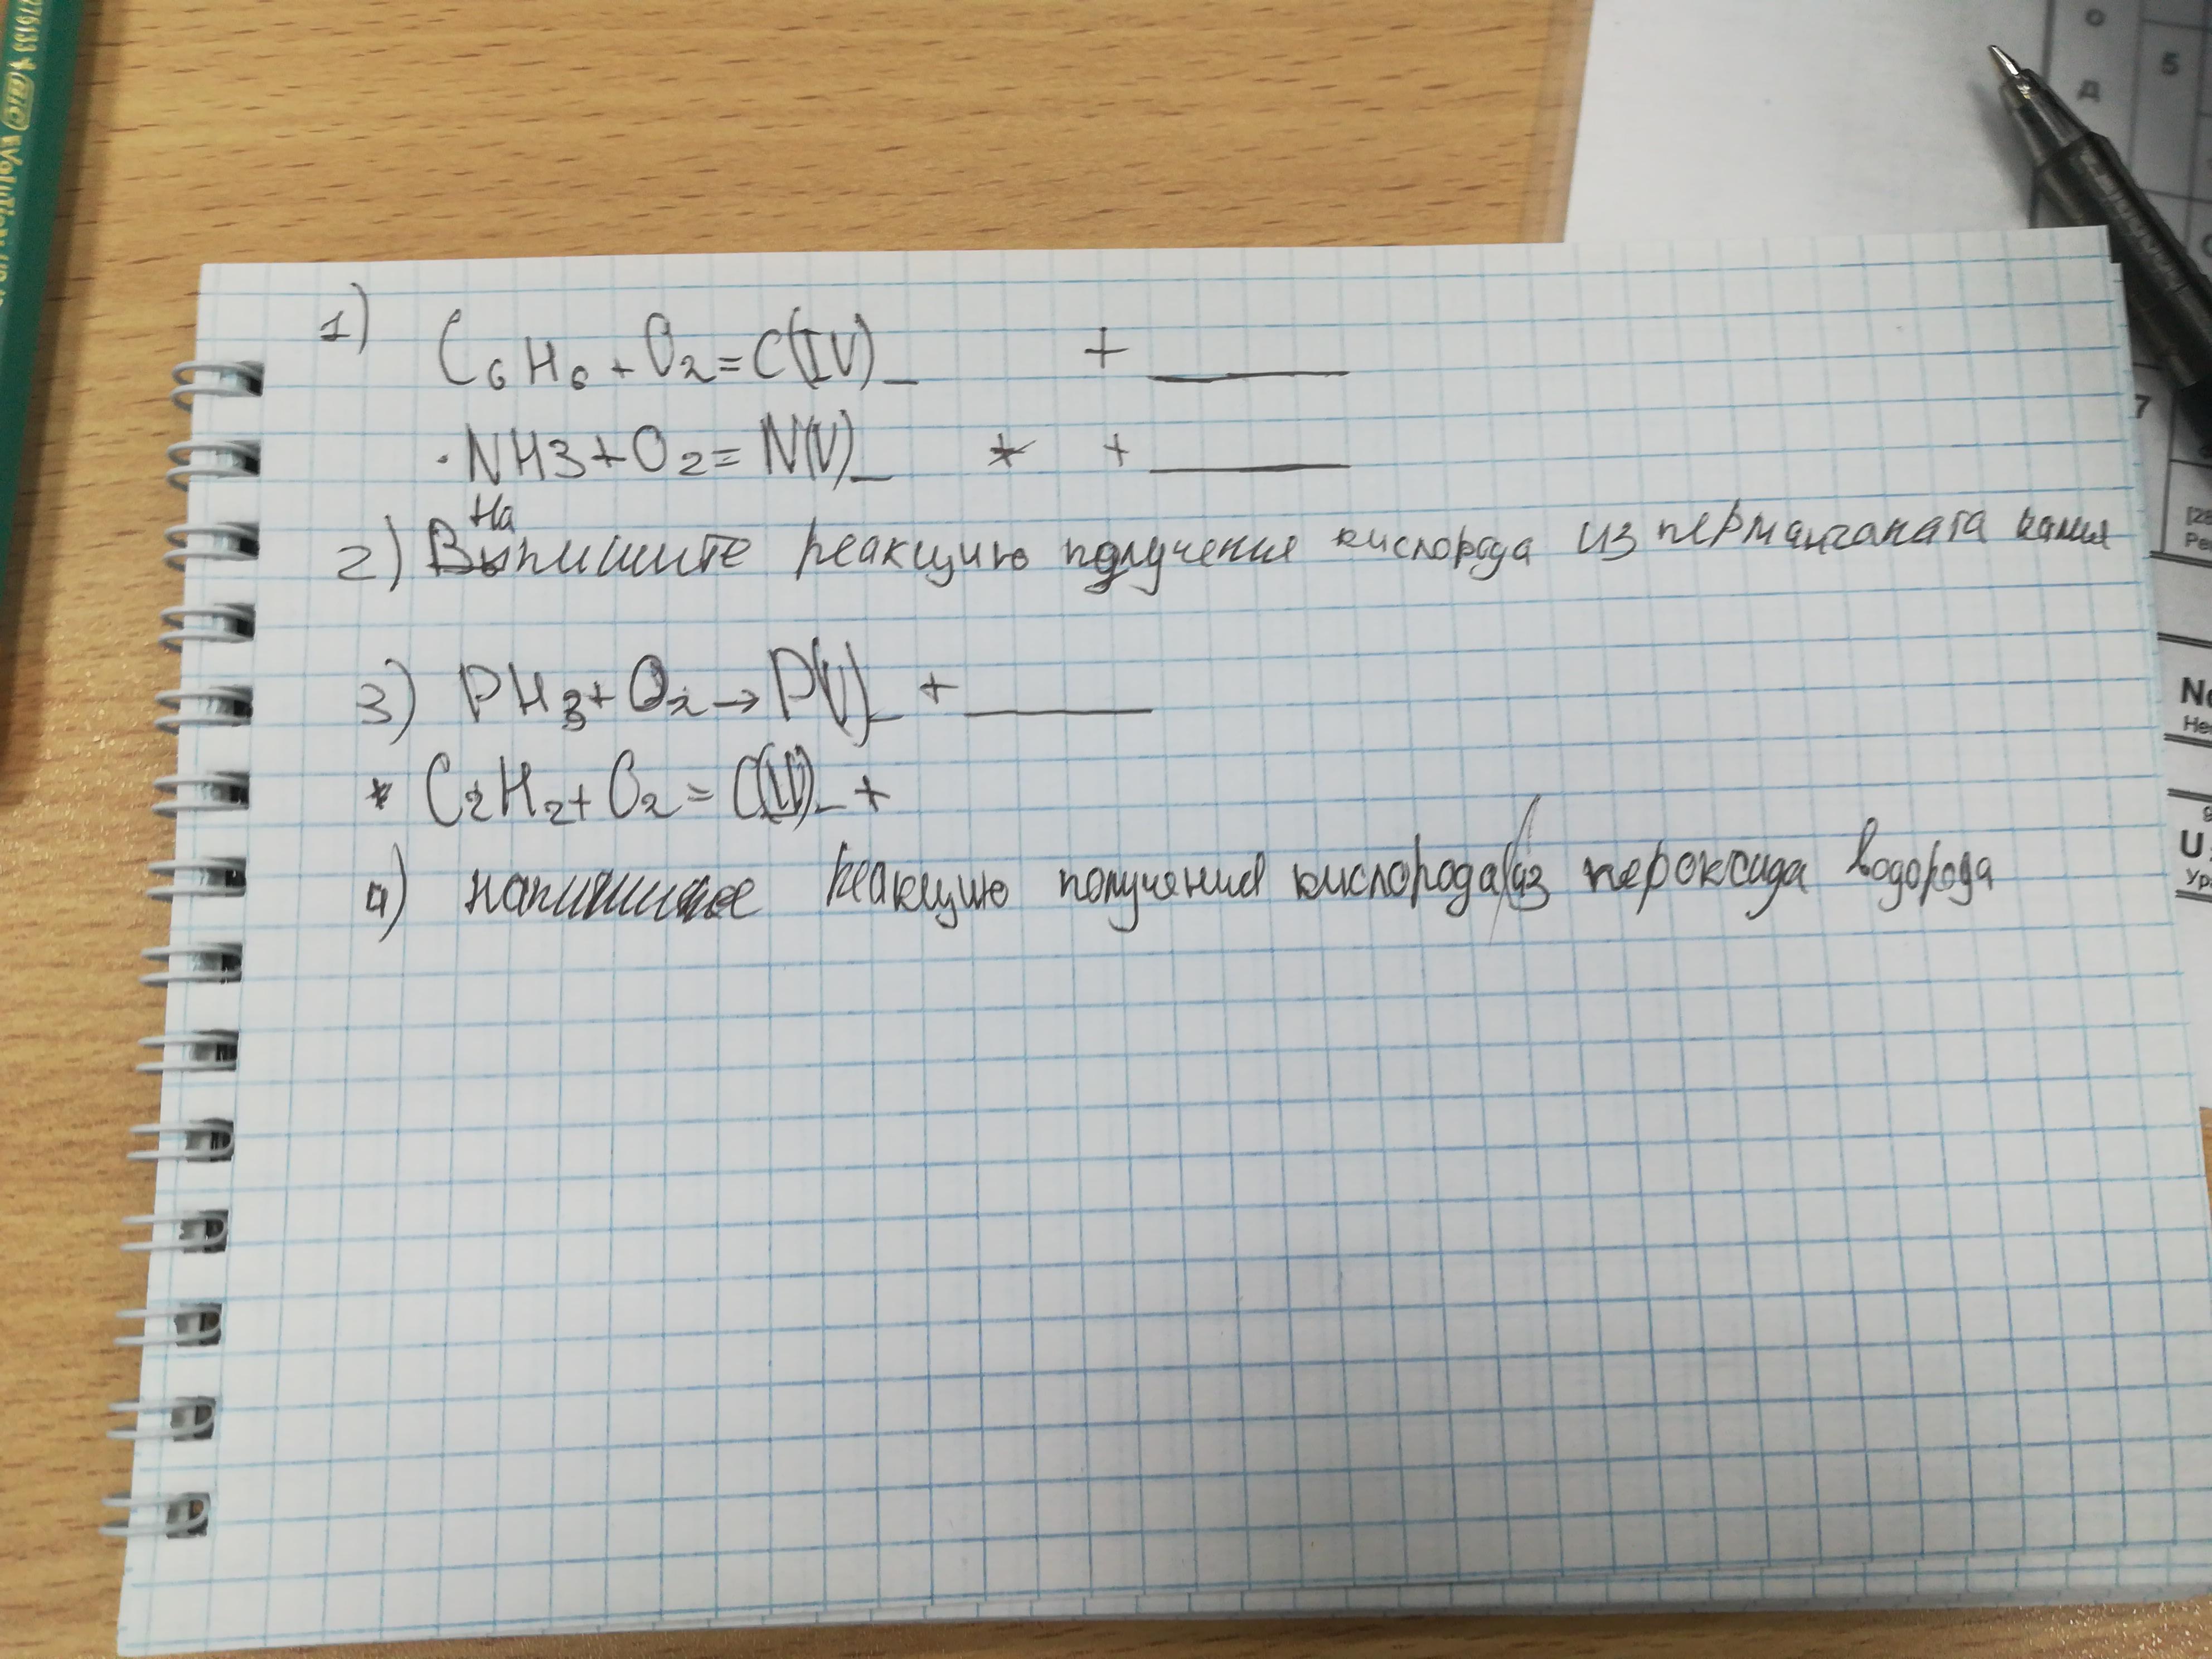 1) C6H6 + O2 = C(IV)_ + ____
· NH3 + O2 = N(V)_ * + ____
На
2) Выпишите реакцию получения кислорода из перманганата калия
3) PH3 + O2 → P(V)_ + ____
* C2H2 + O2 = C(IV)_ +
4) напишите реакцию получения кислорода из пероксида водорода
Evolution
О
Д
5
7